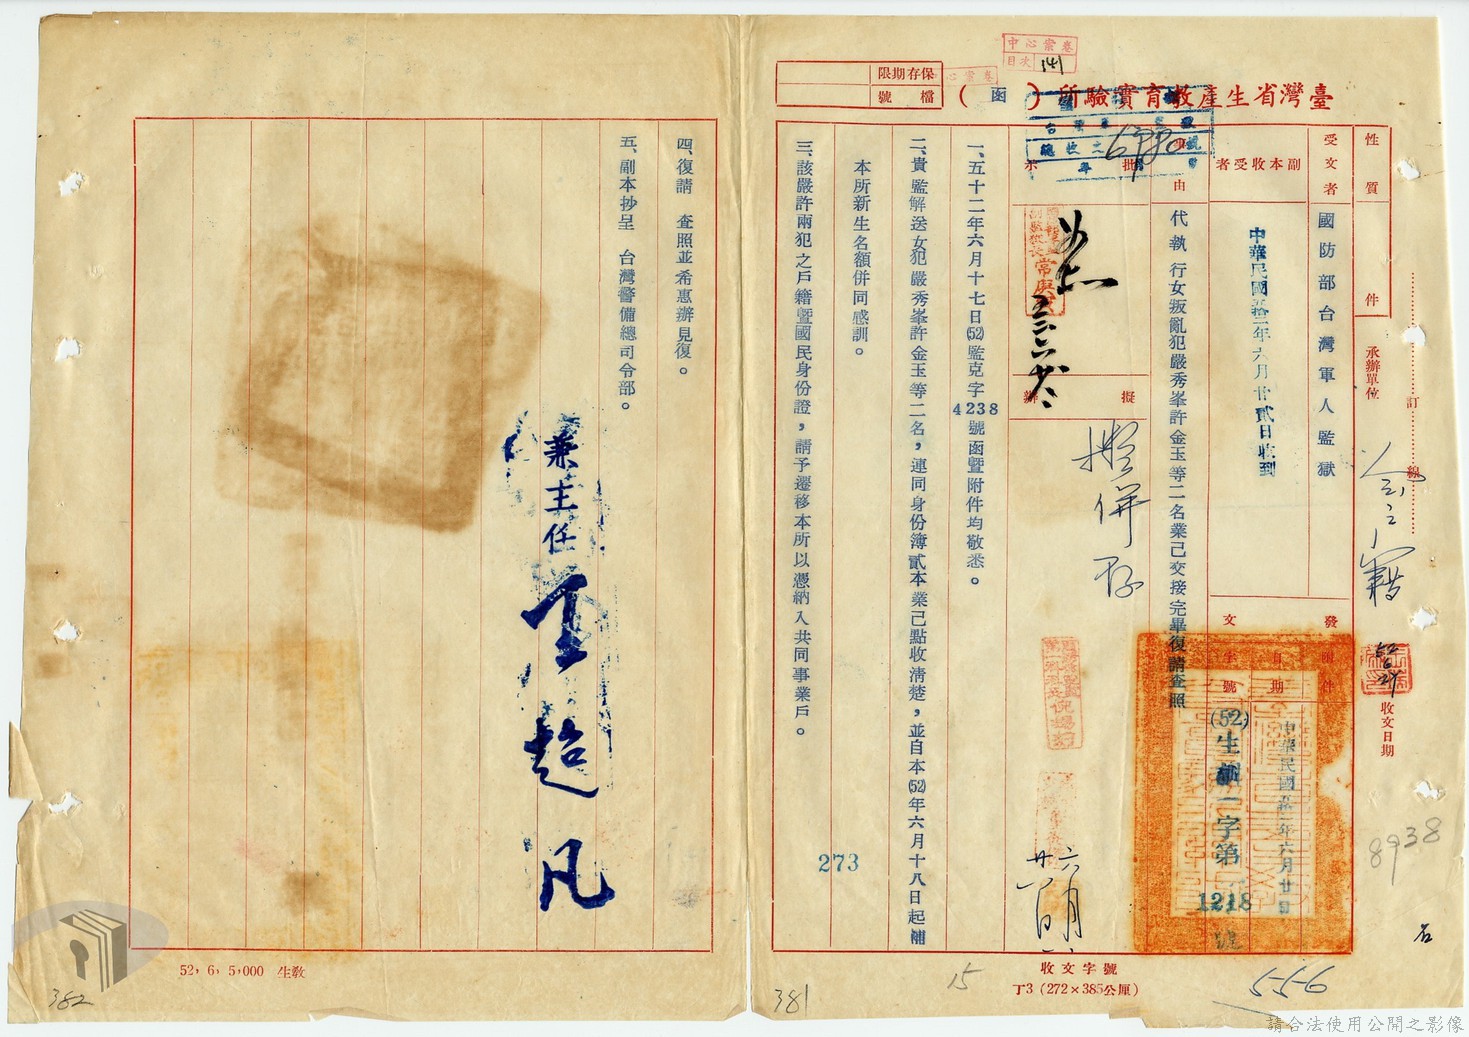 中心崇卷
目次 141
保存期限
檔號
臺灣省生產教育實驗所(函)
性質
件
受文者
國防部台灣軍人監獄
副本收受者
中華民國拾二年六月廿貳日收到
由
代執行女叛亂犯嚴秀峯許金玉等二名業已交接完畢復請查照
批示
擬辦
擬併存
發文
附件
日期
中華民國五二年六月廿日
字號
(52)生輔一字第1218號
承辦單位
收文日期
訂
線
一、五十二年六月十七日(52)監克字4238號函暨附件均敬悉。
二、貴監解送女犯嚴秀峯許金玉等二名,連同身份簿貳本業已點收清楚,並自本(52)年六月十八日起補
本所新生名額併同感訓。
三、該嚴許兩犯之戶籍暨國民身份證,請予遷移本所以憑納入共同事業戶。
四、復請 查照並希惠辦見復。
五、副本抄呈 台灣警備總司令部。
兼主任 王超凡
273
8938
556
15
381
382
收文字號
丁3(272×385公厘)
52,6,5,000 生教
請合法使用公開之影像